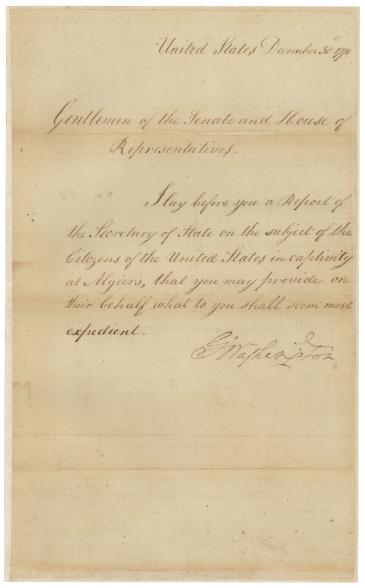 United States December 30 1790
Gentlemen of the Senate and House of
Representatives.
I lay before you a Report of
the Secretary of State on the subject of the
Citizens of the United States in captivity
at Algiers, that you may provide on
their behalf what to you shall seem most
expedient.
Go: Washington